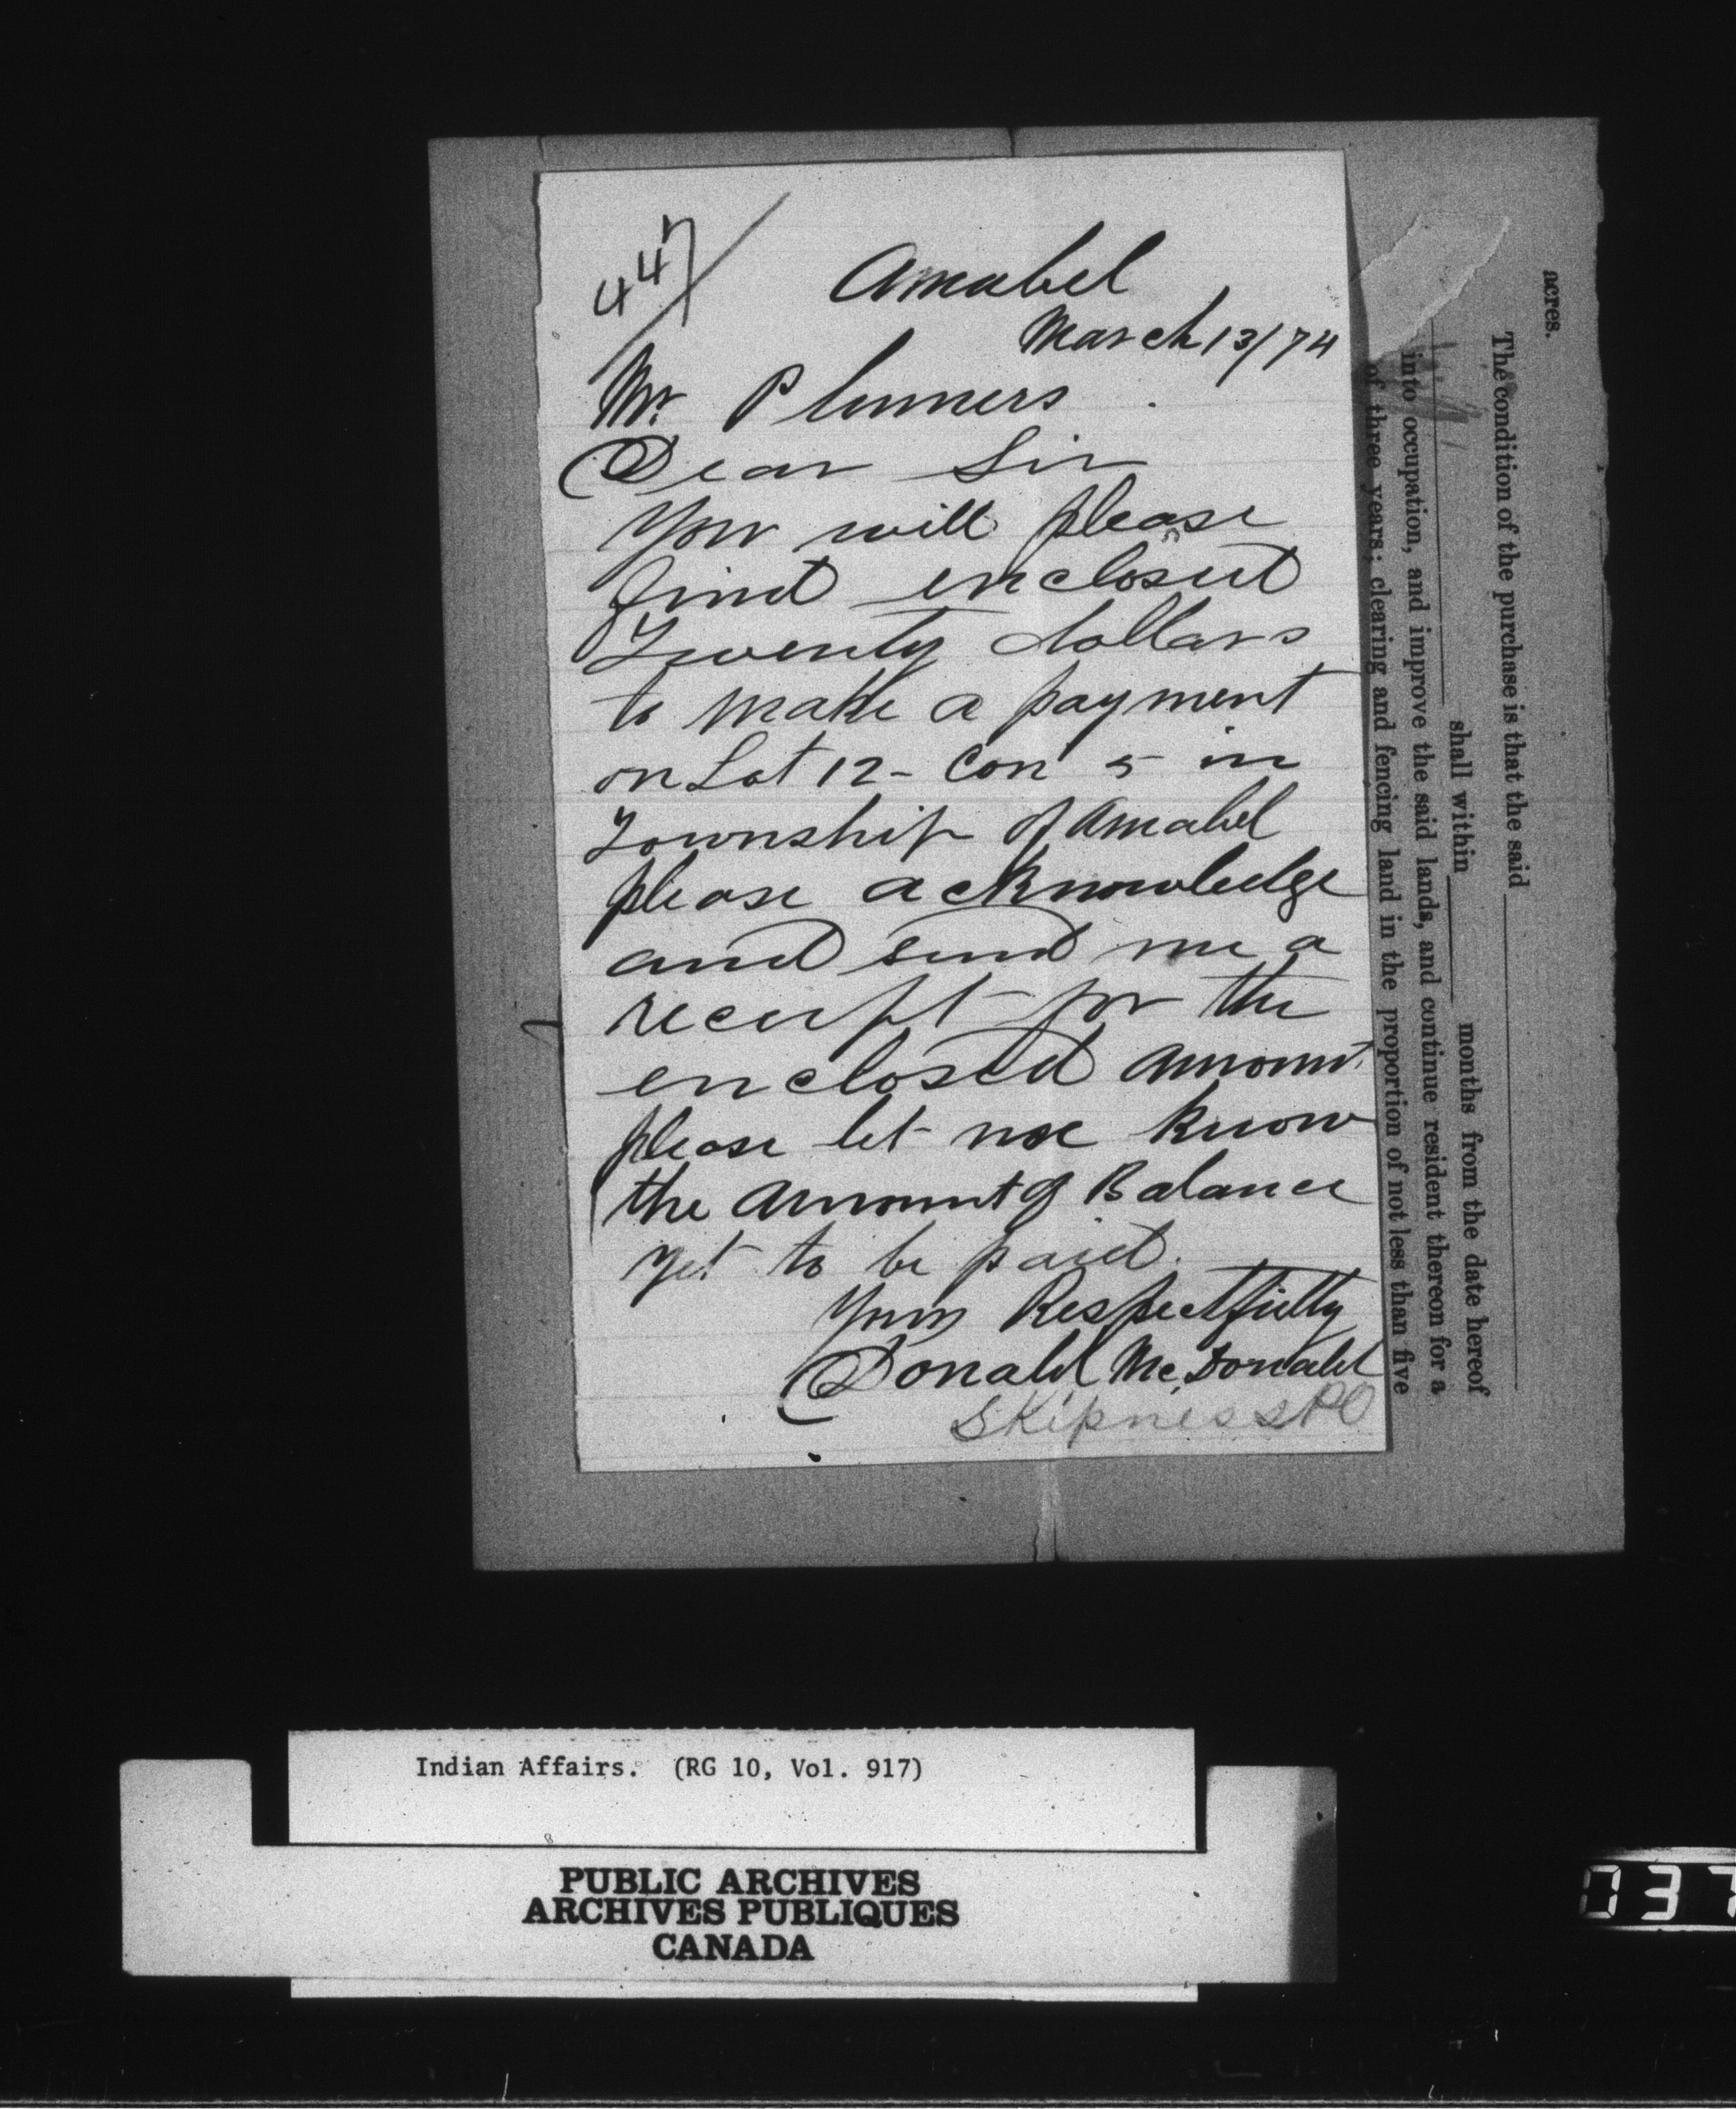 447
Amabel
March 13/74
Mr. Plummers
Dear Sir
You will please
find enclosed
Twenty dollars
to make a payment
on Lot 12 - Con 5 in
Township of Amabel
please acknowledge
and send me a
receipt for the
enclosed amount
please let me know
the amount of Balance
yet to be paid.
Yours Respectfully
Donald McDonald
Skipness PO
acres.
The condition of the purchase is that the said
shall within months from the date hereof
into occupation, and improve the said lands, and continue resident thereon for a
of three years; clearing and fencing land in the proportion of not less than five
Indian Affairs. (RG 10, Vol. 917)
PUBLIC ARCHIVES
ARCHIVES PUBLIQUES
CANADA
037